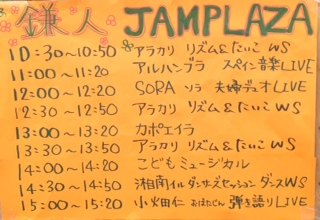 鎌人 JAMPLAZA
10:30~10:50 アラカリ リズム&たいこ WS
11:00~11:20 アルハンブラ スペイン音楽LIVE
12:00~12:20 SORA ソラ 夫婦デュオLIVE
12:30~12:50 アラカリ リズム&たいこ WS
13:00~13:20 カポエイラ
13:30~13:50 アラカリ リズム&たいこ WS
14:00~14:20 こどもミュージカル
14:30~14:50 湘南イルダンサーズセッション ダンスWS
15:00~15:20 小畑仁 弾き語りLIVE